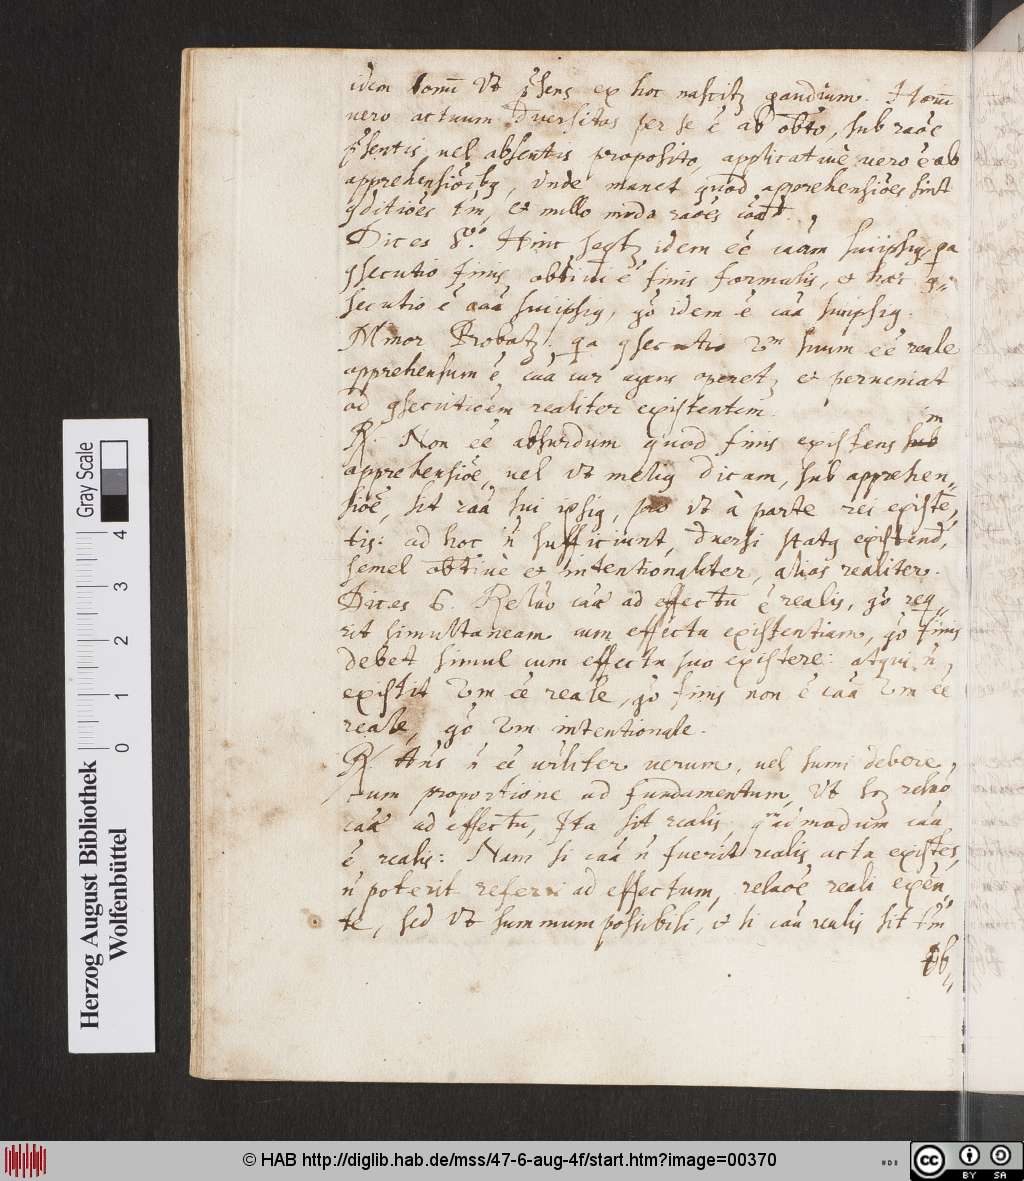 idem bonū ut p̄sens ex hoc nascitꝫ gaudium. Horū
vero actuum Dversitas per se ē ab obto, sub raōe
p̄sentis vel absentis proposito, applicativè vero ē ab
apprehensiōibꝫ, unde manet quod apprehensiōes sint
ꝯditiōes tm̄, et nullo modo raōes
Dices 5.º Hinc seqtꝫ idem eē caām suiipsiꝫ qa
ꝯsecutio finis obtivè ē finis formalis, et haec ꝯ„
secutio ē caā suiipsiꝫ, gō idem ē caā suiipsiꝫ.
Minor Probatꝫ. qa ꝯsecutio 2m suum eē reale
apprehensum ē caā cur agens operetꝫ et perveniat
ad ꝯsecutiōem realiter existentem.
R. Non eē absurdum quod finis existens sub in
apprehensiōe, vel ut meliꝫ dicam, sub apprehen„
siōe, sit caā sui ipsiꝫ, ut à parte rei existē„
tis: ad hoc n̄ sufficiunt, dversi statꝫ existend,
semel obtivè et intentionaliter, alias realiter.
Dices 6. Relaō caā ad effectū ē realis, gō req„
rit simultaneam cum effectu existentiam, gō finis
debet simul cum effectu suo existere: atqui n̄
existit 2m eē reale, gō finis non ē caā 2m eē
reale, gō 2m intentionale.
R Ans n̄ eē verum, vel sumi debere
cum proportione ad fundamentum, ut sꝫ relaō
caā ad effectū, Ita sit realis, qm̄admodum caā
ē realis: Nam si caā n̄ fuerit realis actu existēs,
n̄ poterit referri ad effectum, relaōe reali existen„
te, sed ut summum possibili, et si caā realis sit tm̄